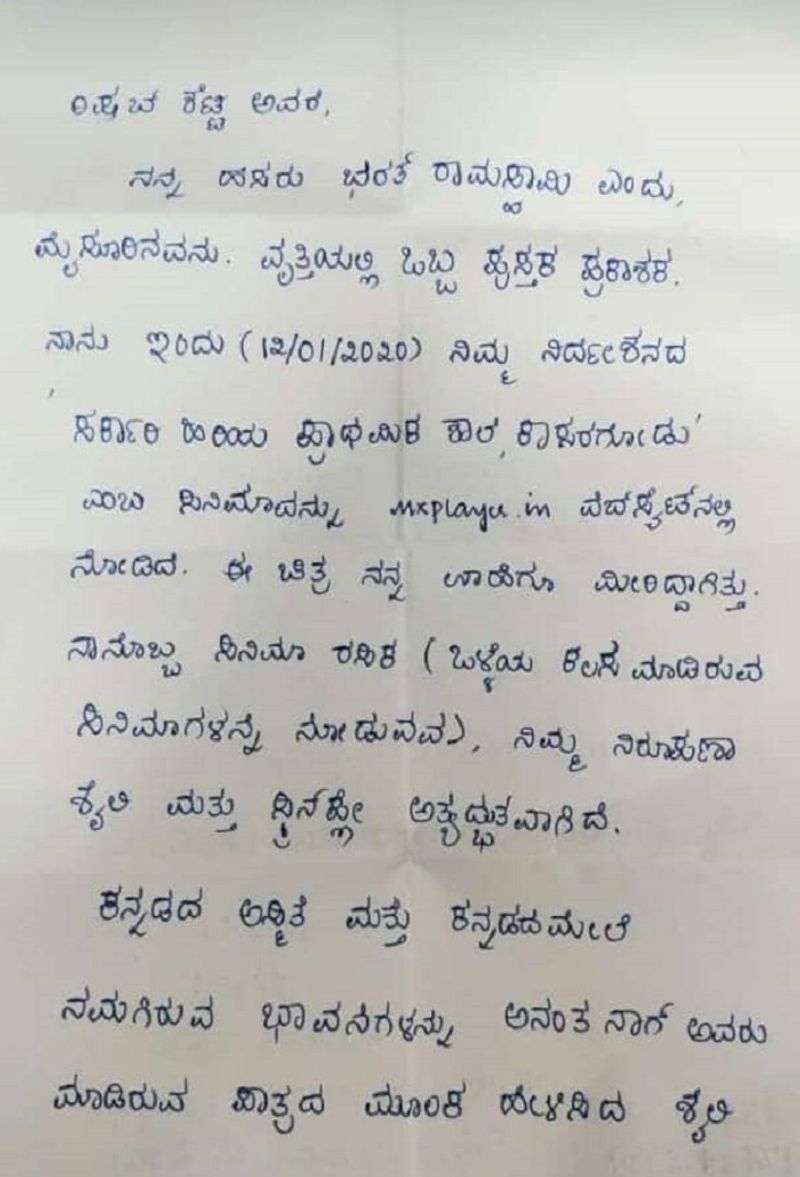 ರಿಷಬ ಶೆಟ್ಟಿ ಅವರೆ,
ನನ್ನ ಹೆಸರು ಭರತ್ ರಾಮಸ್ವಾಮಿ ಎಂದು,
ಮೈಸೂರಿನವನು. ವೃತ್ತಿಯಲ್ಲಿ ಒಬ್ಬ ಪುಸ್ತಕ ಪ್ರಕಾಶಕ.
ನಾನು ಇಂದು (12/01/2020) ನಿಮ್ಮ ನಿರ್ದೇಶನದ
'ಸರ್ಕಾರಿ ಹಿರಿಯ ಪ್ರಾಥಮಿಕ ಶಾಲೆ, ಕಾಸರಗೋಡು'
ಎಂಬ ಸಿನಿಮಾವನ್ನು mxplayer.in ವೆಬ್‌ಸೈಟ್‌ನಲ್ಲಿ
ನೋಡಿದೆ. ಈ ಚಿತ್ರ ನನ್ನ ಊಹೆಗೂ ಮೀರಿದ್ದಾಗಿತ್ತು.
ನಾನೊಬ್ಬ ಸಿನಿಮಾ ರಸಿಕ (ಒಳ್ಳೆಯ ಕೆಲಸ ಮಾಡಿರುವ
ಸಿನಿಮಾಗಳನ್ನೆ ನೋಡುವವ), ನಿಮ್ಮ ನಿರೂಪಣಾ
ಶೈಲಿ ಮತ್ತು ಸ್ಕ್ರೀನ್‌ಪ್ಲೇ ಅತ್ಯದ್ಭುತವಾಗಿದೆ.
ಕನ್ನಡದ ಅಸ್ಮಿತೆ ಮತ್ತು ಕನ್ನಡದ ಮೇಲೆ
ನಮಗಿರುವ ಭಾವನೆಗಳನ್ನು ಅನಂತ ನಾಗ್ ಅವರು
ಮಾಡಿರುವ ಪಾತ್ರದ ಮೂಲಕ ಹೇಳಿಸಿದ ಶೈಲಿ